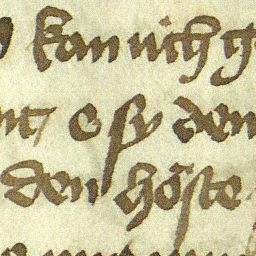 kan nich g
nt / e sy den
den höste